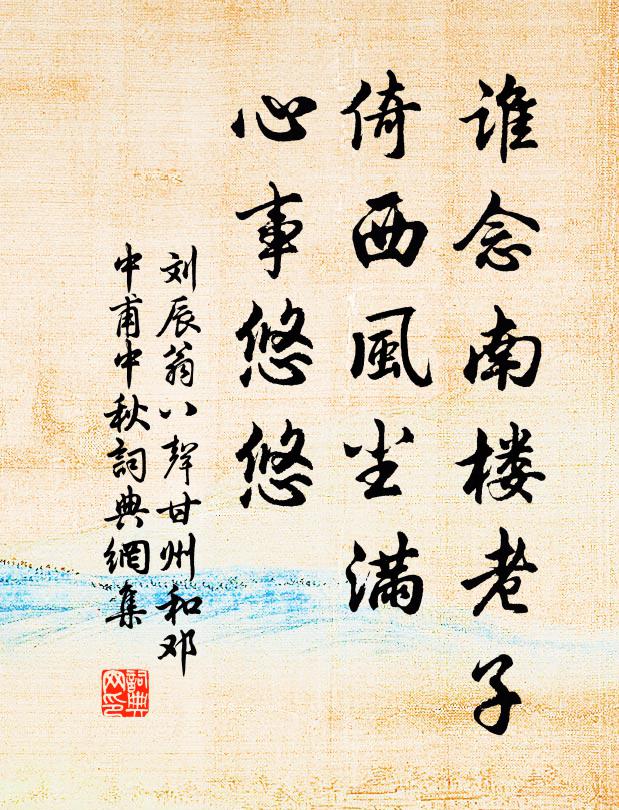 谁念南楼老子
倚西風尘满
心事悠悠
刘辰翁八聲甘州和邓
中甫中秋詞典網集
詞典网印